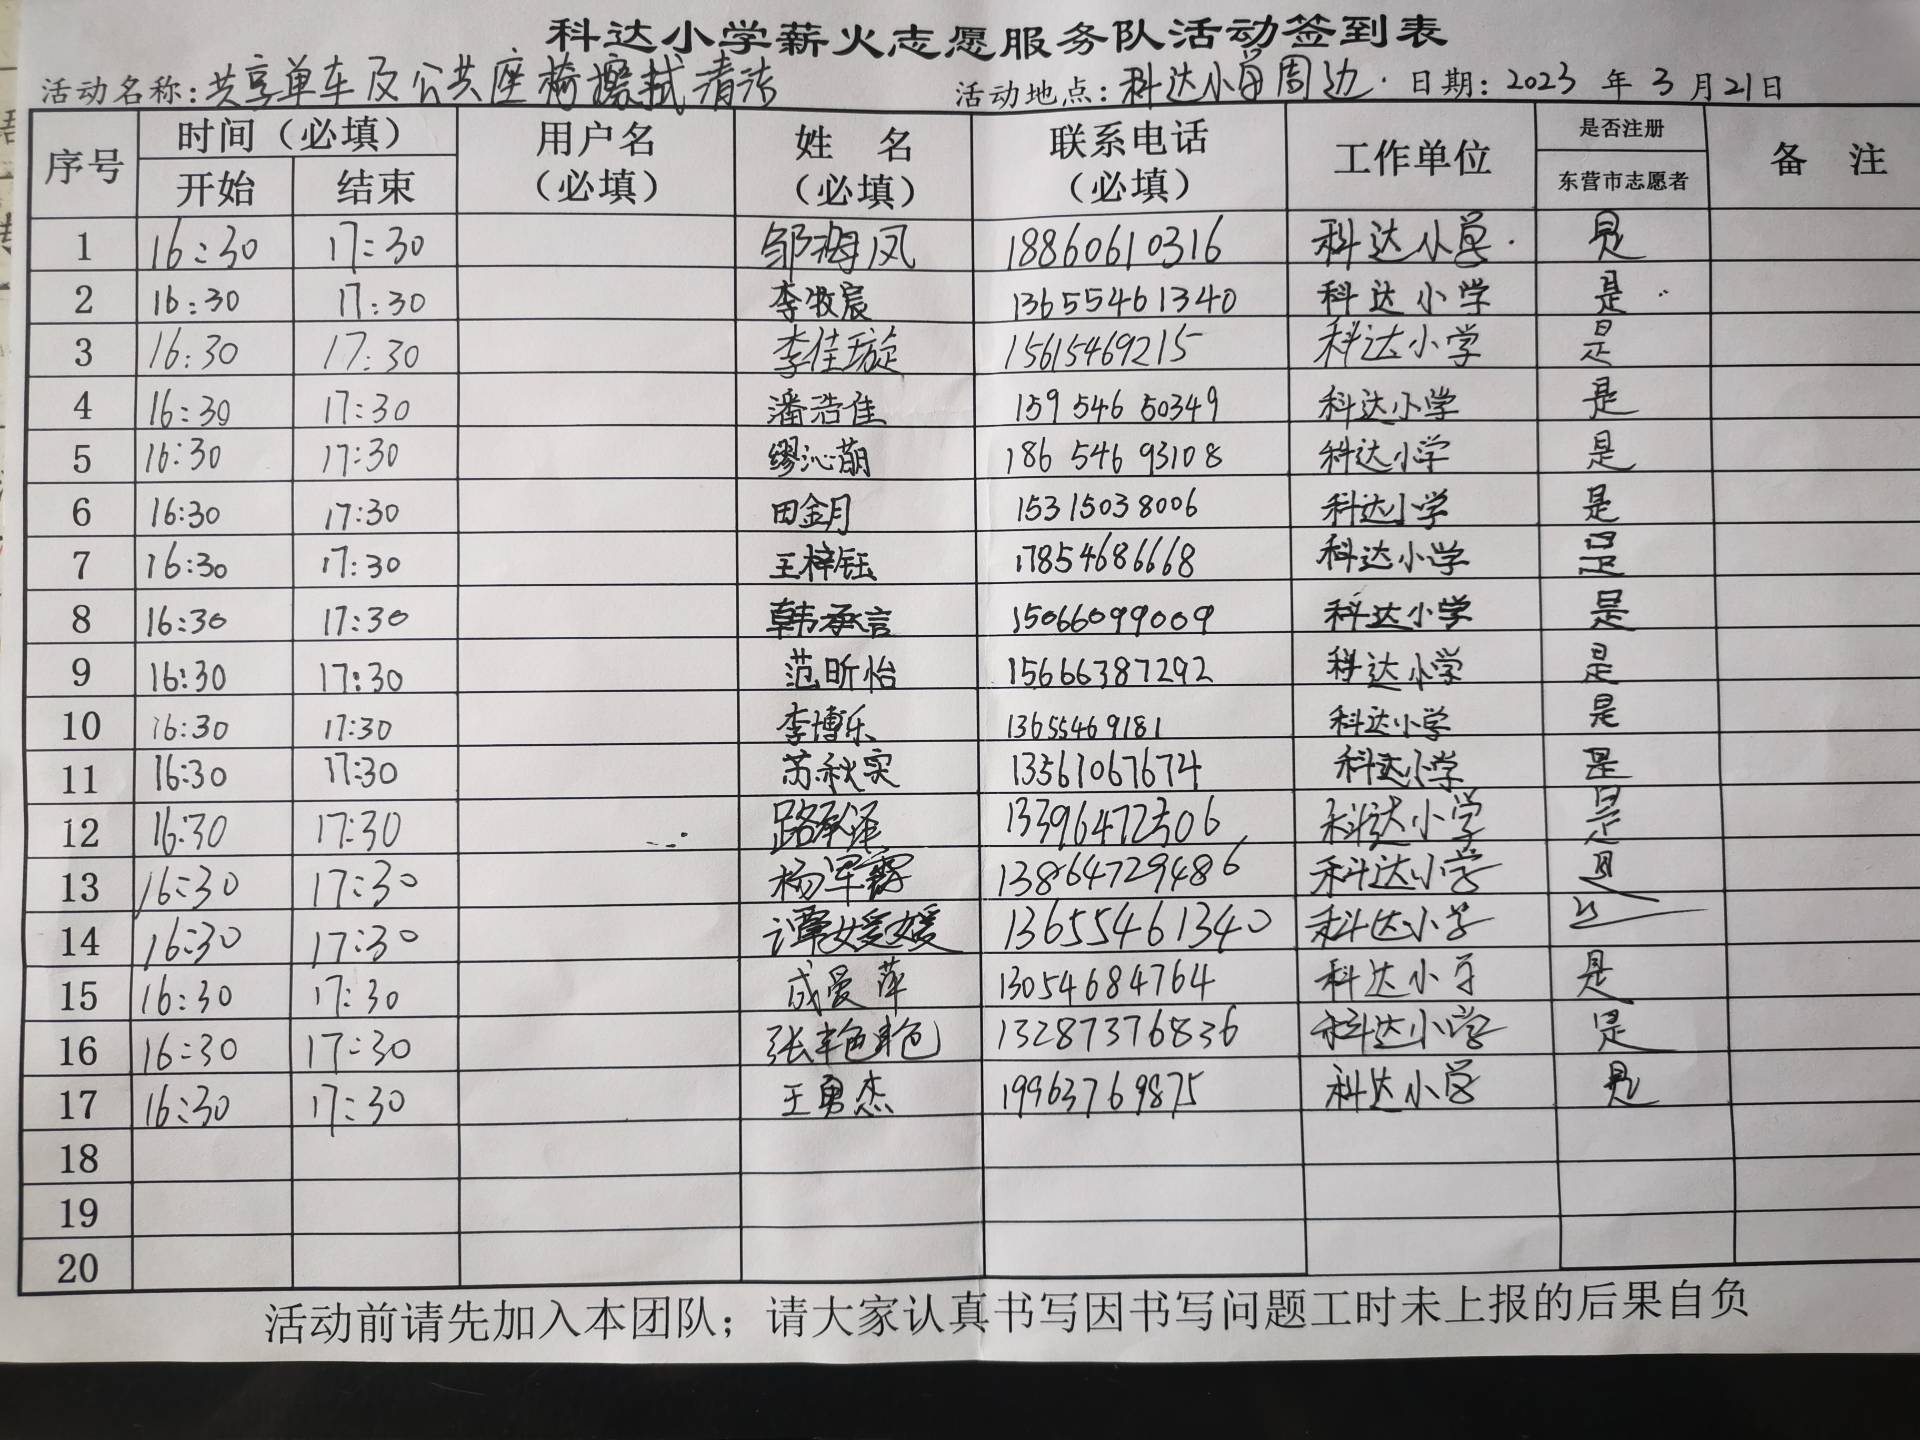 科达小学薪火志愿服务队活动签到表
活动名称：共享单车及公共座椅擦拭清洁 活动地点：科达小学周边. 日期：2023 年 3 月 21 日
序号 时间（必填） 用户名（必填） 姓 名（必填） 联系电话（必填） 工作单位 是否注册 备 注
开始 结束 东营市志愿者
1 16:30 17:30 邹梅凤 18860610316 科达小学. 是
2 16:30 17:30 李牧宸 13655461340 科达小学 是
3 16:30 17:30 李佳璇 15615469215 科达小学 是
4 16:30 17:30 潘浩佳 159 546 50349 科达小学 是
5 16:30 17:30 缪沁萌 186 546 93108 科达小学 是
6 16:30 17:30 田金月 15315038006 科达小学 是
7 16:30 17:30 王梓钰 17854686668 科达小学 是
8 16:30 17:30 韩承言 15066099009 科达小学 是
9 16:30 17:30 范昕怡 15666387292 科达小学 是
10 16:30 17:30 李博乐 13655469181 科达小学 是
11 16:30 17:30 苏秋实 13561067674 科达小学 是
12 16:30 17:30 路承泽 13396472506 科达小学 是
13 16:30 17:30 杨军霖 13864729486 科达小学 是
14 16:30 17:30 谭媛媛 13655461340 科达小学
15 16:30 17:30 成曼萍 13054684764 科达小学 是
16 16:30 17:30 张艳艳 13287376836 科达小学 是
17 16:30 17:30 王勇杰 19963769875 科达小学 是
18
19
20
活动前请先加入本团队；请大家认真书写因书写问题工时未上报的后果自负